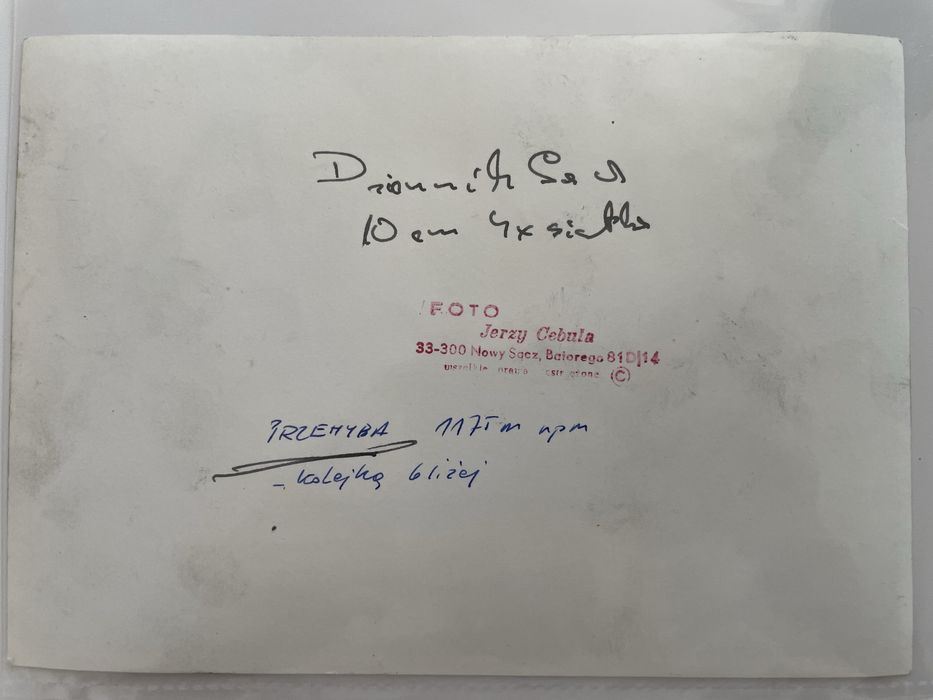 Dziennik
10 cm 4x siatka
FOTO
Jerzy Cebula
33-300 Nowy Sącz, Batorego 81D|14
wszelkie prawa zastrzeżone ©
PRZEHYBA 1175 m npm
- kolejką bliżej